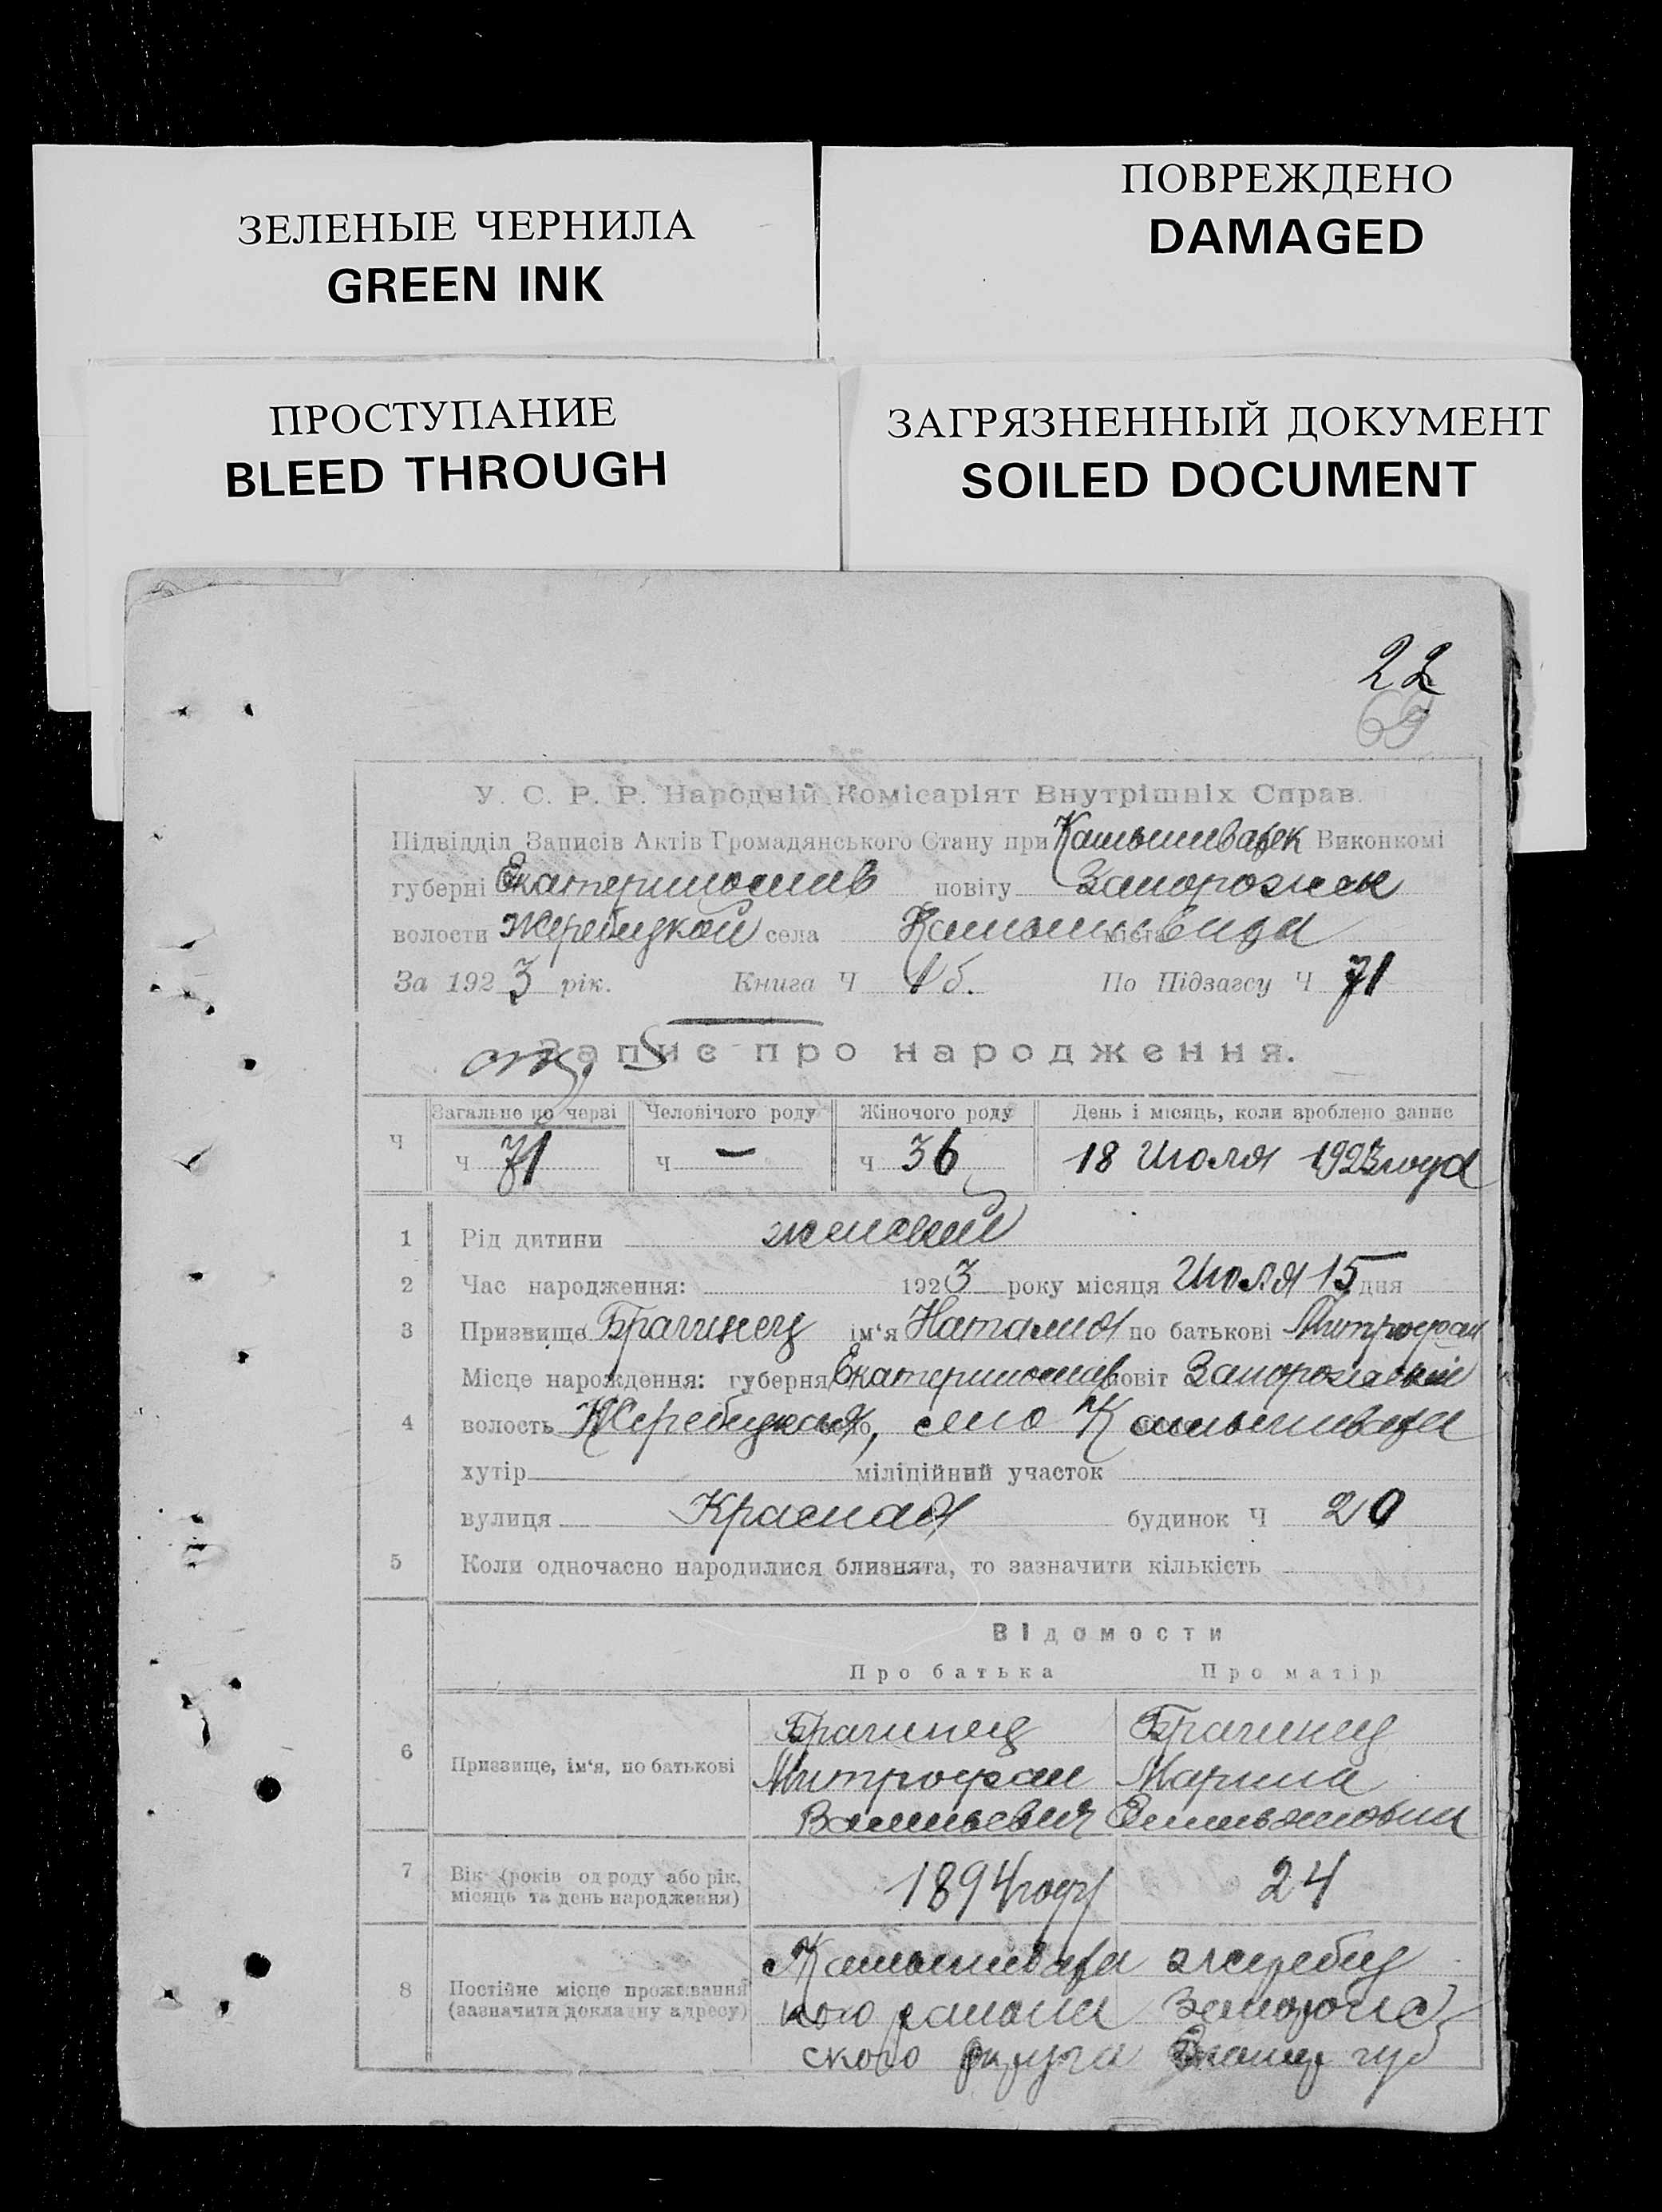 ЗЕЛЕНЫЕ ЧЕРНИЛА
GREEN INK
ПОВРЕЖДЕНО
DAMAGED
ПРОСТУПАНИЕ
BLEED THROUGH
ЗАГРЯЗНЕННЫЙ ДОКУМЕНТ
SOILED DOCUMENT
22
69
У. С. Р. Р. Народній Комісаріят Внутрішніх Справ.
Підвідділ Записів Актів Громадянського Стану при Камышеватск Виконкомі
губерні Екатеринослав повіту Запорожск
волости Жеребецкой села міста Камышеваха
За 1923 рік. Книга Ч 1б. По Підзагсу Ч 71
Запис про народження.
Загальне по черзі Человічого роду Жіночого роду День і місяць, коли зроблено запис
Ч Ч 71 Ч — Ч 36 18 Июля 1923 года
1 Рід дитини женский
2 Час народження: 1923 року місяця Июля 15 дня
3 Призвище Брагинец ім'я Наталия по батькові Митрофан
Місце нарождення: губерня Екатеринослав повіт Запорожский
4 волость Жеребецкая, село Камышеваха
хутір міліційний участок
вулиця Красная будинок Ч 20
5 Коли одночасно народилися близнята, то зазначити кількість
Відомости
Про батька Про матір
6 Призвище, ім'я, по батькові
Брагинец Брагинец
Митрофан Марина
Васильевич Емельяновна
7 Вік (років од роду або рік, місяць та день народження) 1894 году 24
8 Постійне місце проживання (зазначити докладну адресу)
Камышеваха жеребец
кого района Запорож
ского округа Екатер губ